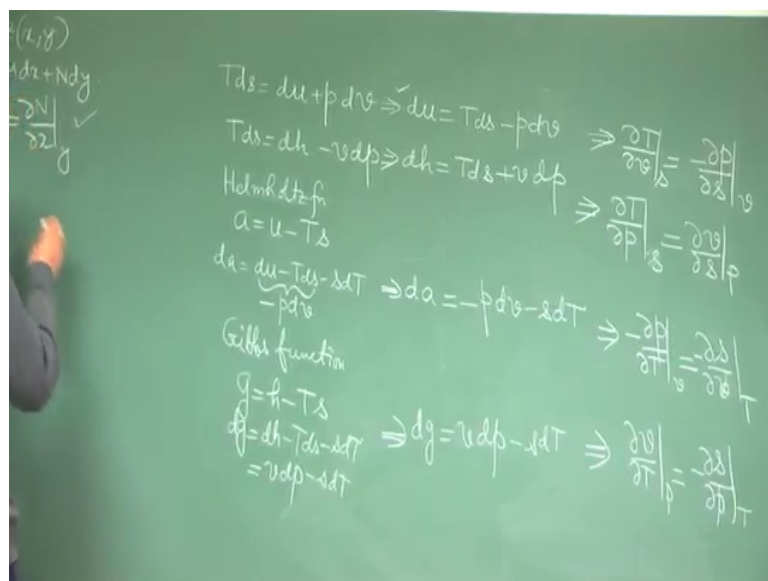 (x,y)
dx+Ndy
=∂N/∂x|y ✓
Tds=du+pdv⇒✓du=Tds-pdv ⇒∂T/∂v|s=-∂p/∂s|v
Tds=dh-vdp⇒dh=Tds+vdp ⇒∂T/∂p|s=∂v/∂s|p
Helmholtz fn
a=u-Ts
da=du-Tds-sdT ⇒da=-pdv-sdT ⇒-∂p/∂T|v=-∂s/∂v|T
-pdv
Gibbs function
g=h-Ts
dg=dh-Tds-sdT ⇒dg=vdp-sdT ⇒∂v/∂T|p=-∂s/∂p|T
=vdp-sdT